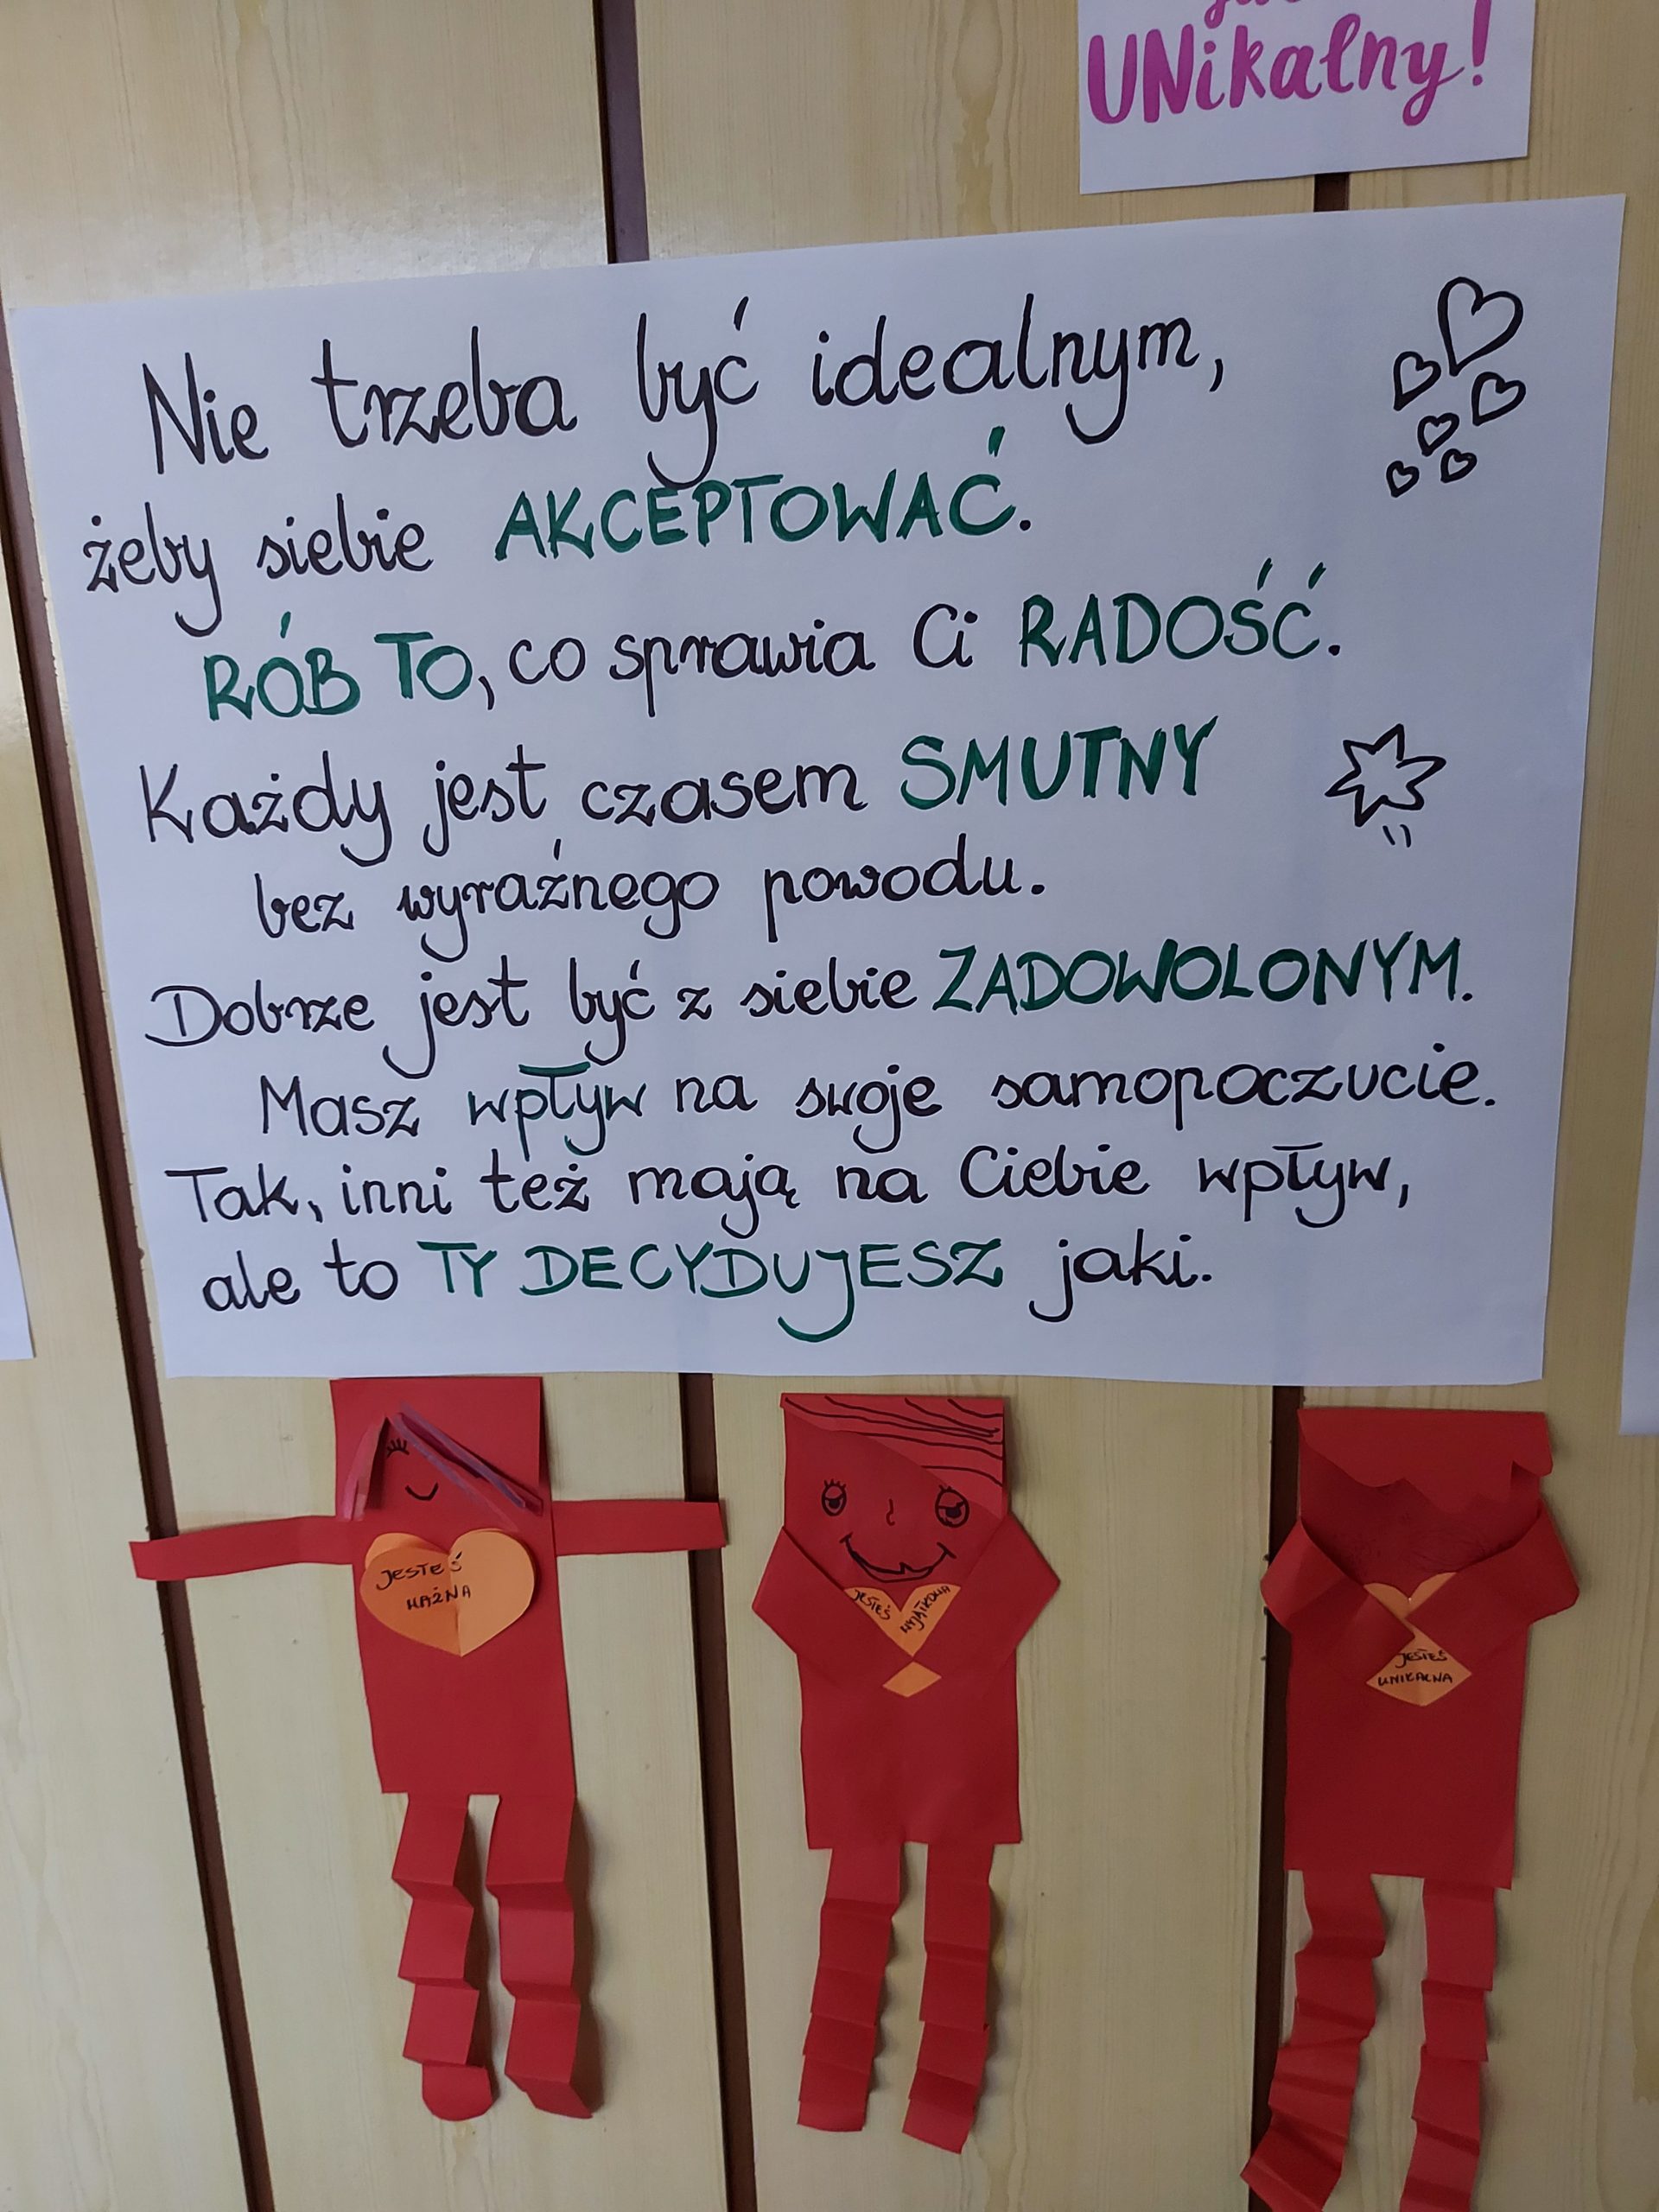 UNikalny!
Nie trzeba być idealnym,
żeby siebie AKCEPTOWAĆ.
RÓB TO, co sprawia Ci RADOŚĆ.
Każdy jest czasem SMUTNY
bez wyraźnego powodu.
Dobrze jest być z siebie ZADOWOLONYM.
Masz wpływ na swoje samopoczucie.
Tak, inni też mają na Ciebie wpływ,
ale to TY DECYDUJESZ jaki.
JESTEŚ
WAŻNA
JESTEŚ
WYJĄTKOWA
JESTEŚ
UNIKALNA